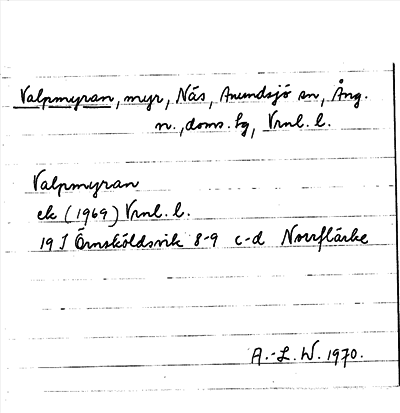 Valpmyran, myr, Näs, Anundsjö sn, Ång.
n., doms. bg, Vrnl. l.
Valpmyran
ek (1969) Vrnl. l.
19 J Örnsköldsvik 8-9 c-d Norrflärke
A.-L. W. 1970.